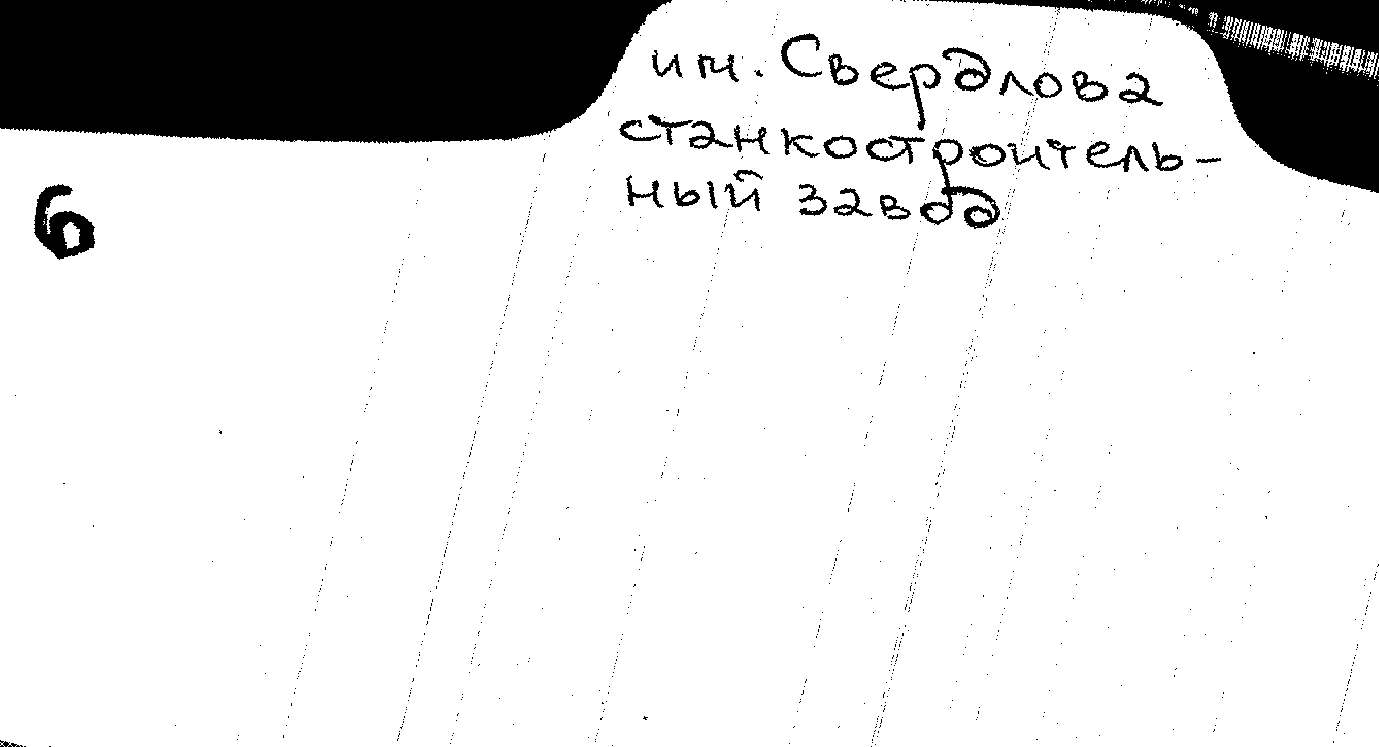 им. Свердлова
станкостроитель-
ный завод
6